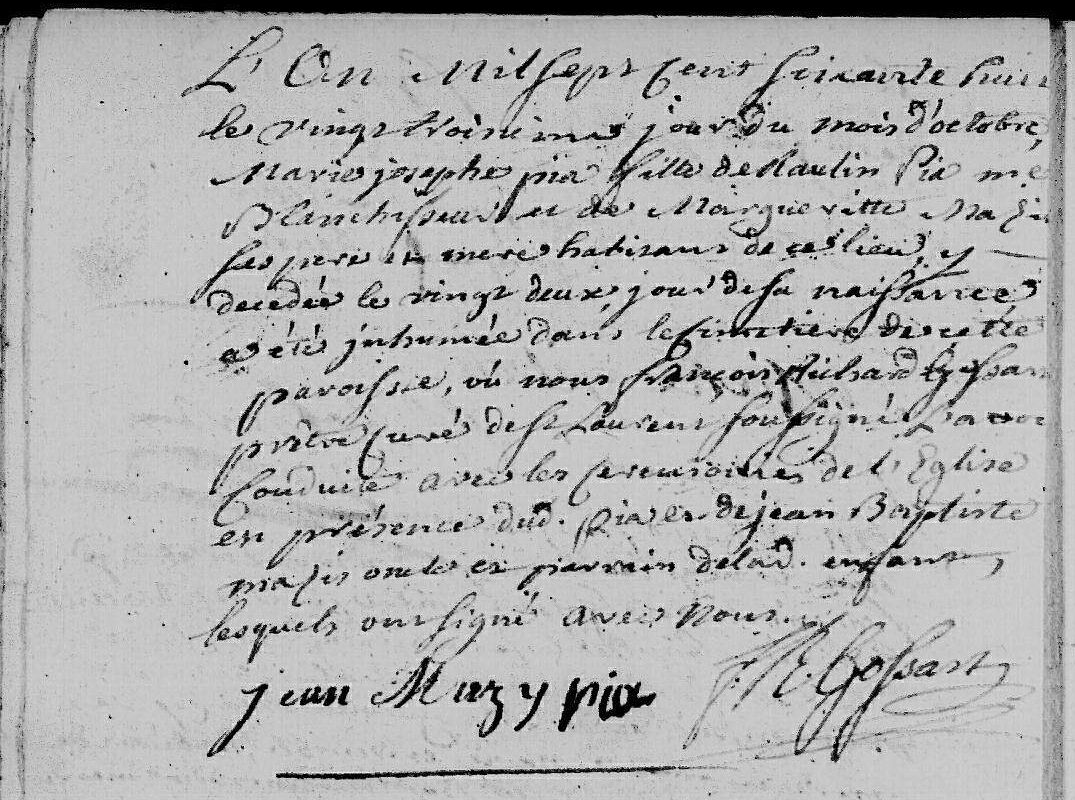 L'An Mil sept Cent soixante huit
le vingt troisieme jour du mois d'octobre,
Marie josephe pia fille de Raulin Pia me
Blanchisseur et de Margueritte Mazi
ses pere et mere habitans de ce lieu, y
decedée le vingt deux, jour de sa naissance,
a été inhumée dans le Cimetiere de cette
paroisse, où nous françois Richard Gossart
prêtre Curé de St Laurent soussigné L'avons
Conduite avec les ceremonies de l'Eglise
en présence dud. pia et de jean Baptiste
mazis oncle et parrain de lad. enfant,
lesquels ont signé avec Nous.
jean Mazy pia f. R. Gossart